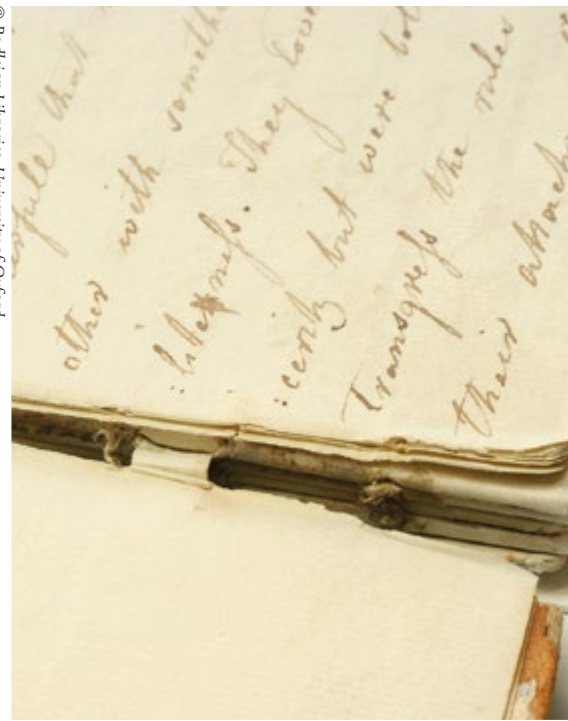 © Bodleian Libraries, University of Oxford
that
other with someth
:liteness. They love
:cerity but were bot
Transgress the rules
their attach